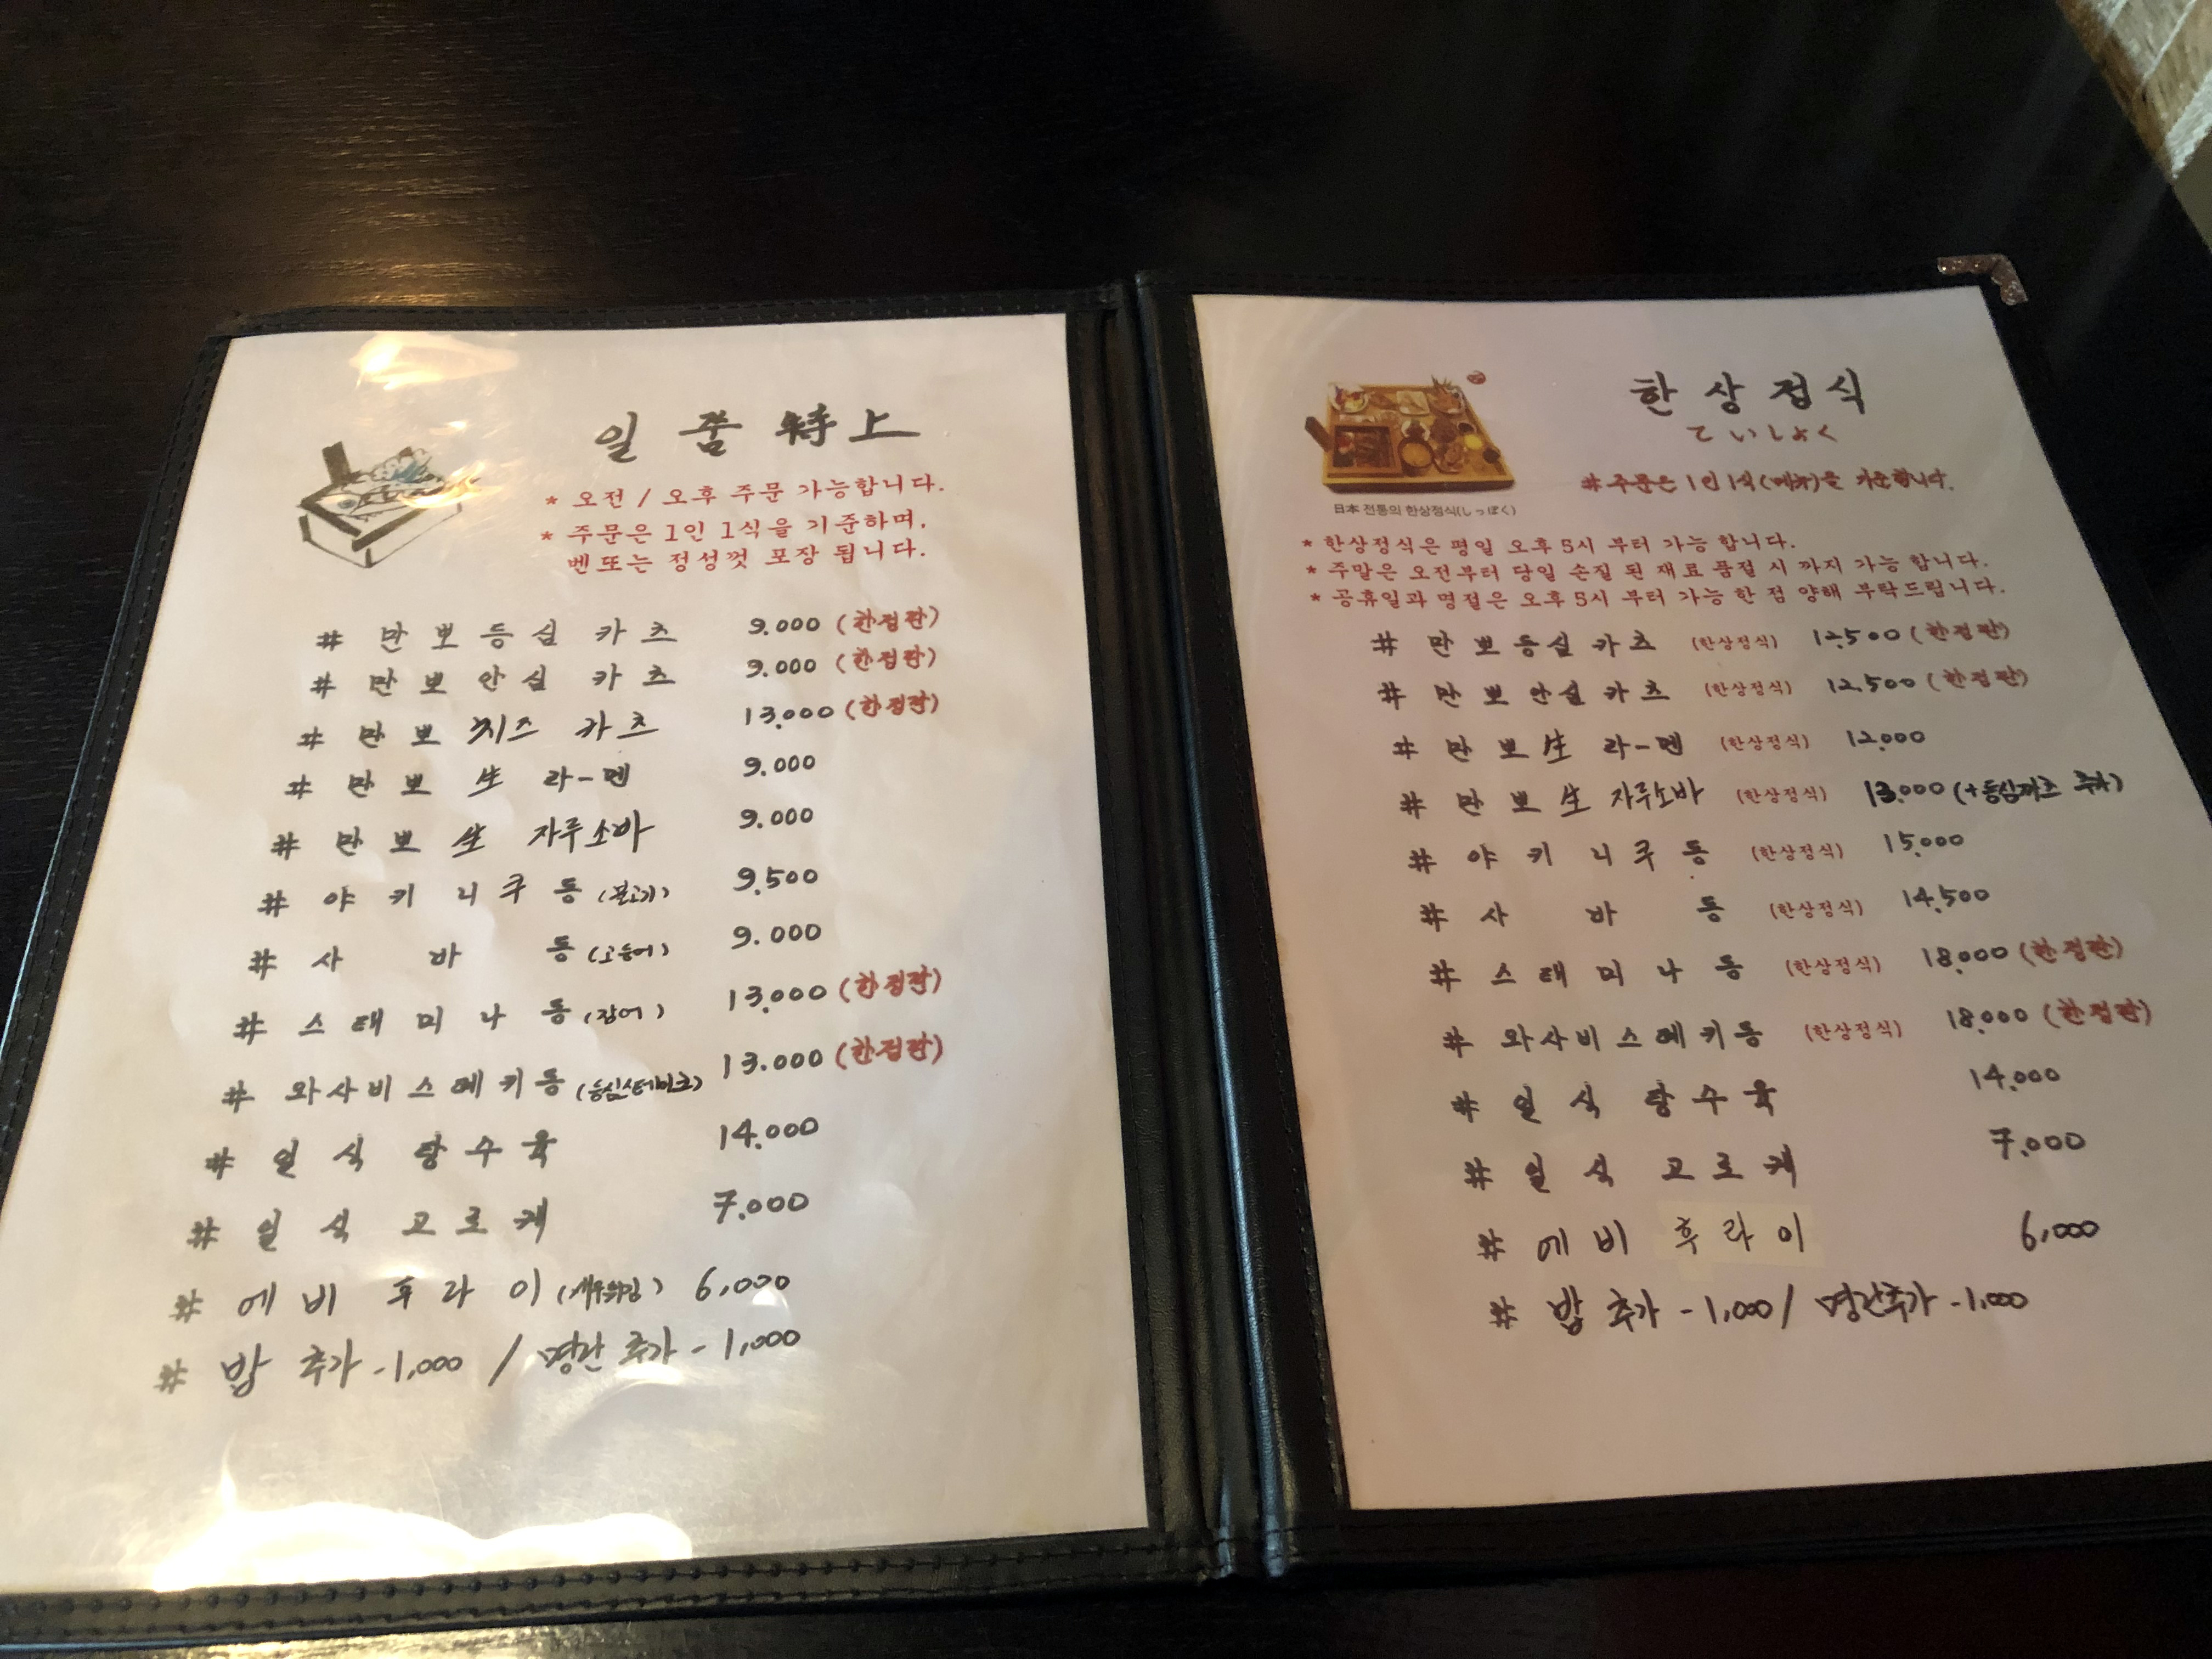 일 품 特上
* 오전 / 오후 주문 가능합니다.
* 주문은 1인 1식을 기준하며,
벤또는 정성껏 포장 됩니다.
# 만 뽀 등 심 카 츠 9.000 (한정판)
# 만 뽀 안 심 카 츠 9.000 (한정판)
# 만 뽀 치즈 카 츠 13.000 (한정판)
# 만 뽀 生 라-멘 9.000
# 만 뽀 生 자루소바 9.000
# 야 키 니 쿠 동 (불고기) 9.500
# 사 바 동 (고등어) 9.000
# 스 태 미 나 동 (장어) 13.000 (한정판)
# 와사비스테키동 (등심스테이크) 13.000 (한정판)
# 일 식 탕 수 육 14.000
# 일 식 고 로 케 7.000
# 에 비 후 라 이 (새우튀김) 6,000
# 밥 추가 -1,000 / 명란 추가 - 1,000
한 상 정 식
ていしょく
# 주문은 1인 1식(메뉴)을 기준합니다.
日本 전통의 한상정식(しっぽく)
* 한상정식은 평일 오후 5시 부터 가능 합니다.
* 주말은 오전부터 당일 손질 된 재료 품절 시 까지 가능 합니다.
* 공휴일과 명절은 오후 5시 부터 가능 한 점 양해 부탁드립니다.
# 만 뽀 등 심 카 츠 (한상정식) 12,500 (한정판)
# 만 뽀 안 심 카 츠 (한상정식) 12.500 (한정판)
# 만 뽀 生 라-멘 (한상정식) 12.000
# 만 뽀 生 자루소바 (한상정식) 13.000 (+등심까츠 추가)
# 야 키 니 쿠 동 (한상정식) 15.000
# 사 바 동 (한상정식) 14.500
# 스 태 미 나 동 (한상정식) 18.000 (한정판)
# 와사비스테키동 (한상정식) 18.000 (한정판)
# 일 식 탕 수 육 14.000
# 일 식 고 로 케 7.000
# 에 비 후 라 이 6,000
# 밥 추가 -1,000 / 명란추가 -1,000